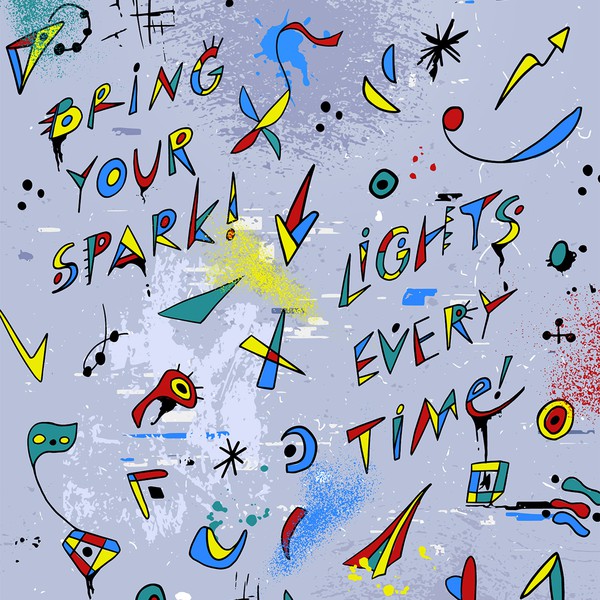 BRING
YOUR
SPARK!
LIGHTS
EVERY
TIME!